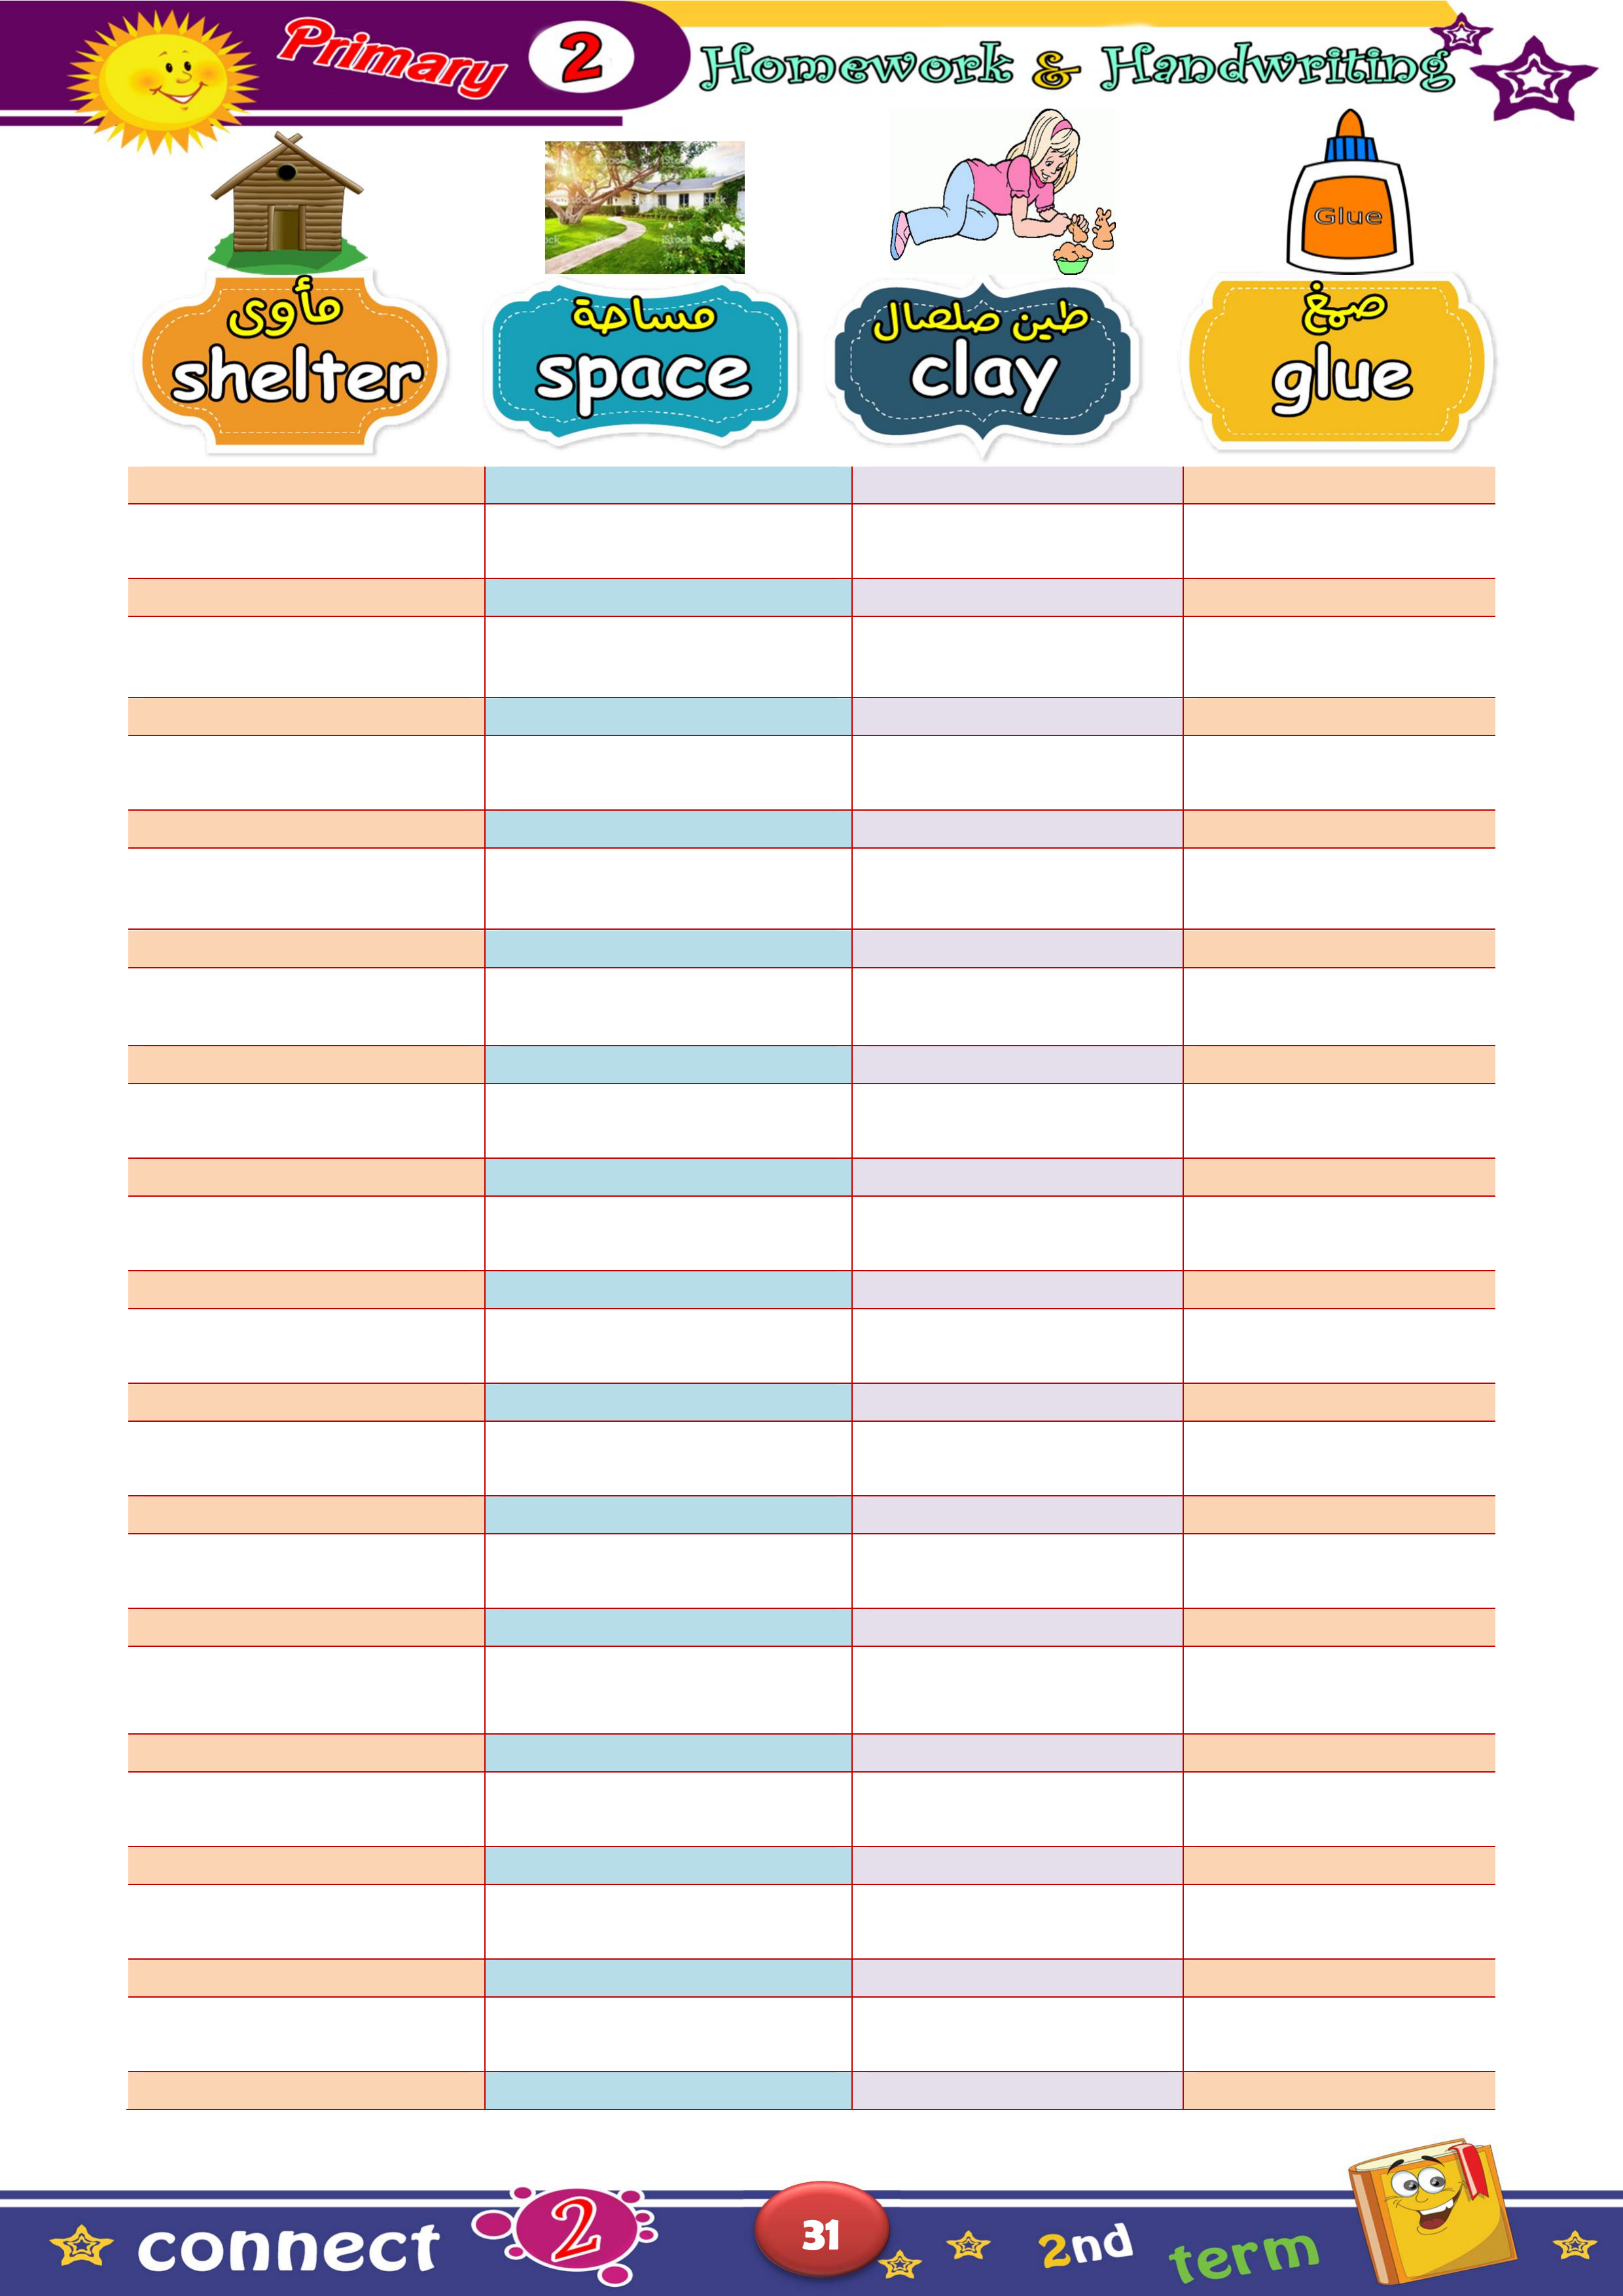 Primary 2 Homework & Handwriting
Glue
مأوى
shelter
مساحة
space
طين صلصال
clay
صمغ
glue
connect 2 31 2nd term